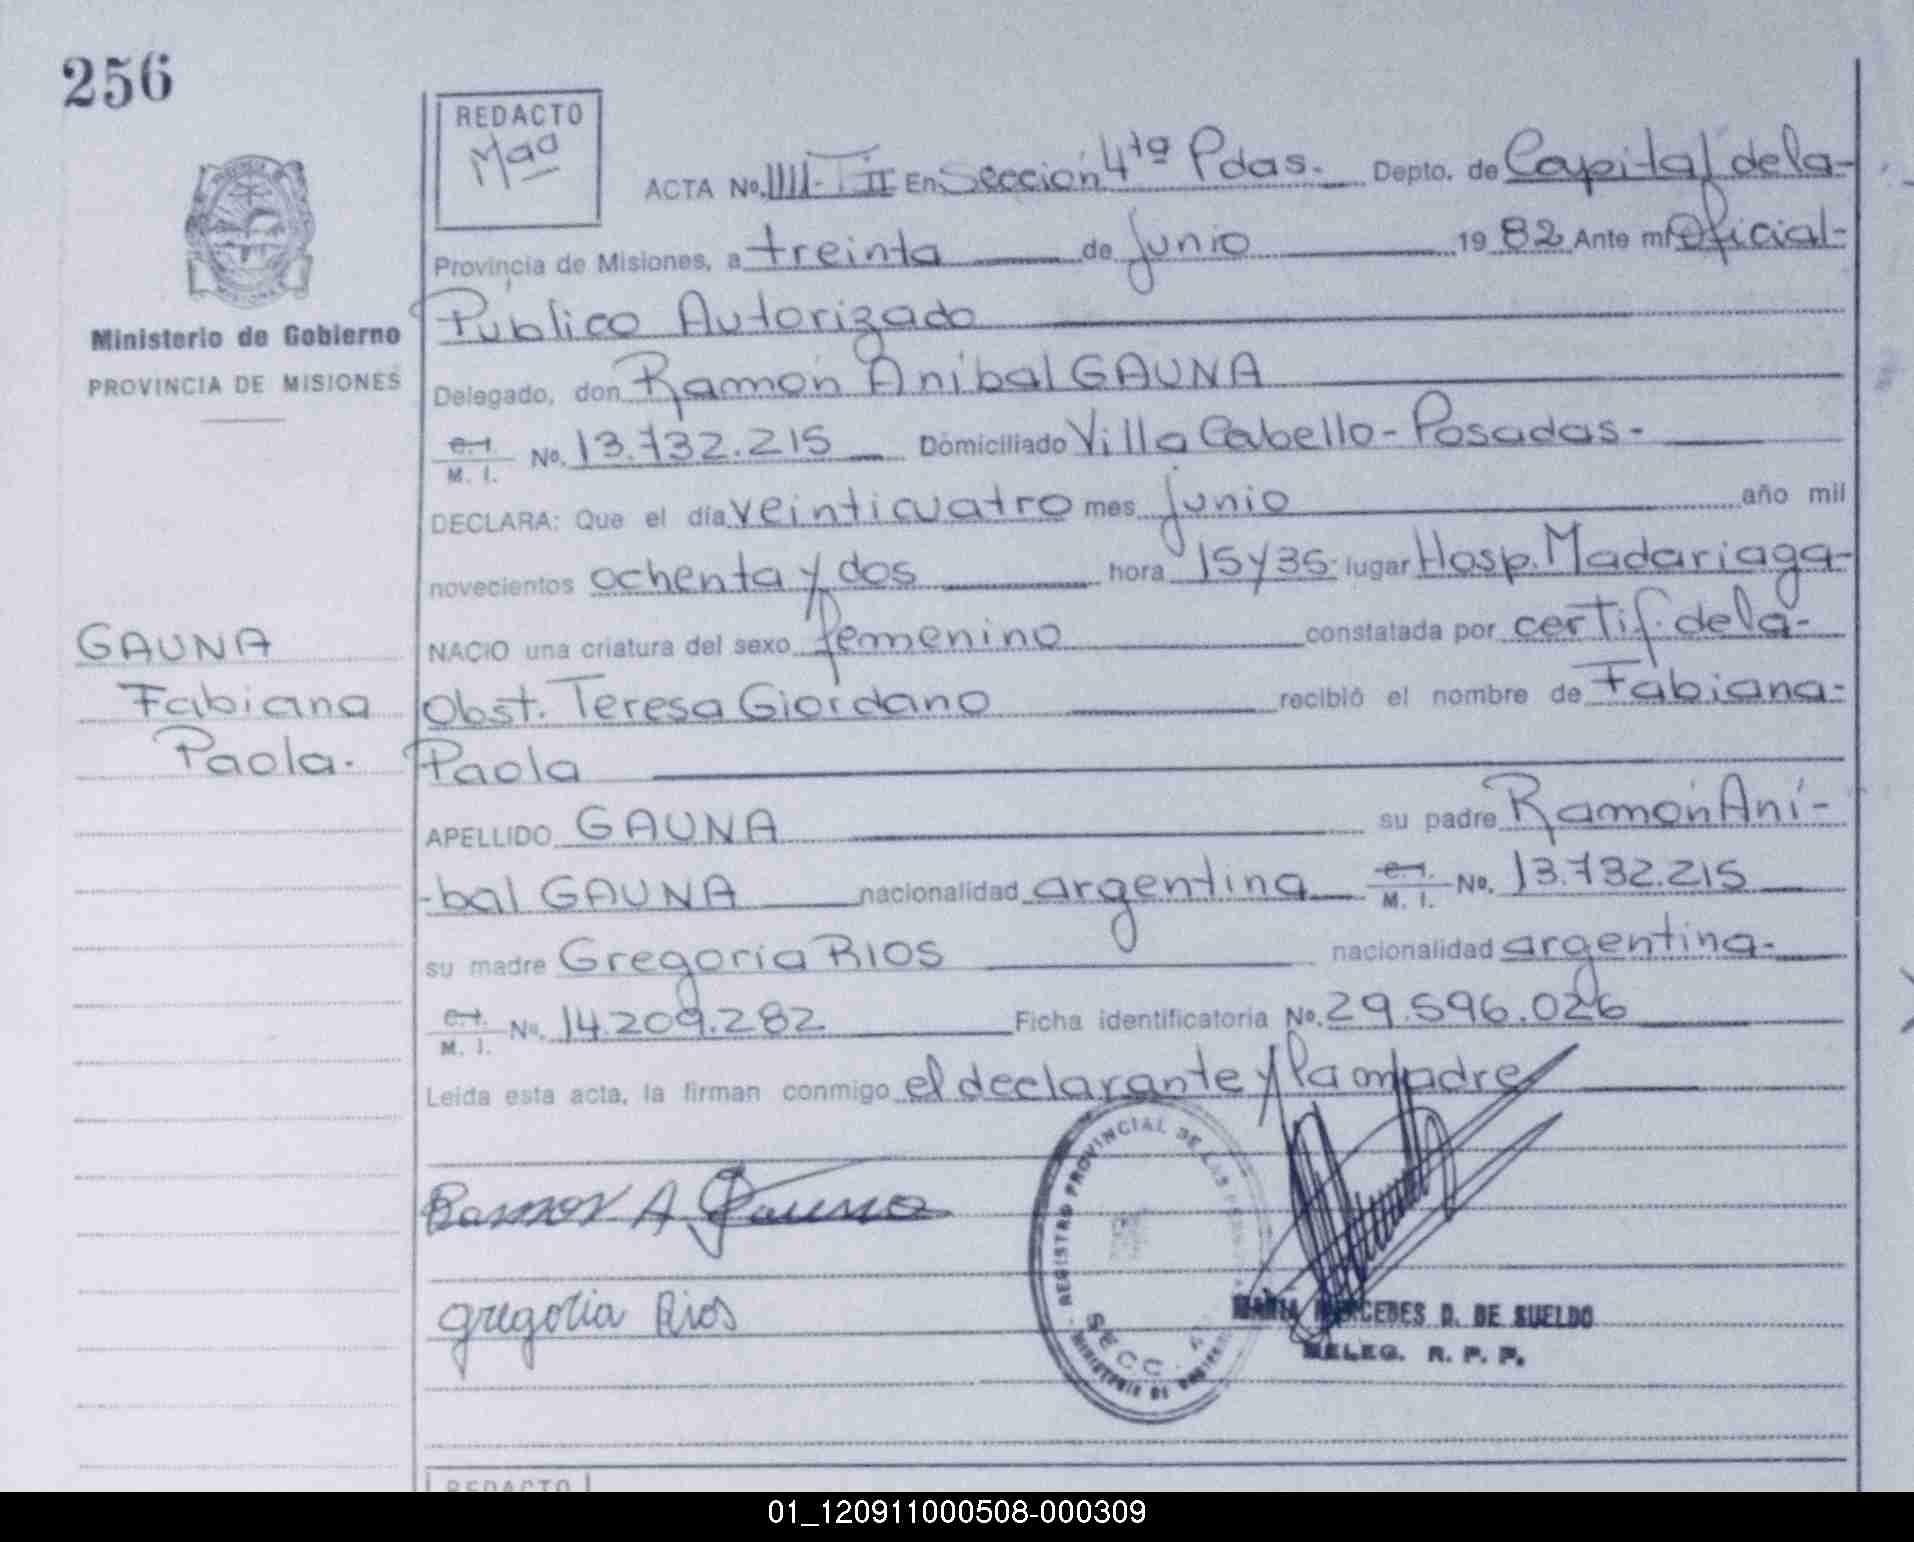 256
REDACTO
Maa
ACTA No. 1111-T II En Sección 4ta Pdas. Depto. de Capital de la-
Provincia de Misiones, a treinta de junio 1982 Ante mí Oficial-
Público Autorizado
Ministerio de Gobierno
PROVINCIA DE MISIONES
Delegado, don Ramón Aníbal GAUNA
C.I. M. I. No. 13.732.215 Domiciliado Villa Cabello-Posadas-
DECLARA: Que el día veinticuatro mes junio año mil
novecientos ochenta y dos hora 15 y 35 lugar Hosp. Madariaga-
GAUNA
Fabiana
Paola.
NACIO una criatura del sexo femenino constatada por certif. de la-
Obst. Teresa Giordano recibió el nombre de Fabiana-
Paola
APELLIDO GAUNA su padre Ramón Aní-
-bal GAUNA nacionalidad argentina C.I. M. I. No. 13.732.215
su madre Gregoria RIOS nacionalidad argentina-
C.I. M. I. No. 14.209.282 Ficha identificatoria No. 29.596.026
Leída esta acta, la firman conmigo el declarante y la madre
Ramon A. Gauna
Gregoria Rios
REGISTRO PROVINCIAL DE LAS PERSONAS
SECC. 4
MINISTERIO DE GOBIERNO
MARIA MERCEDES D. DE SUELDO
DELEG. R. P. P.
REDACTO
01_120911000508-000309